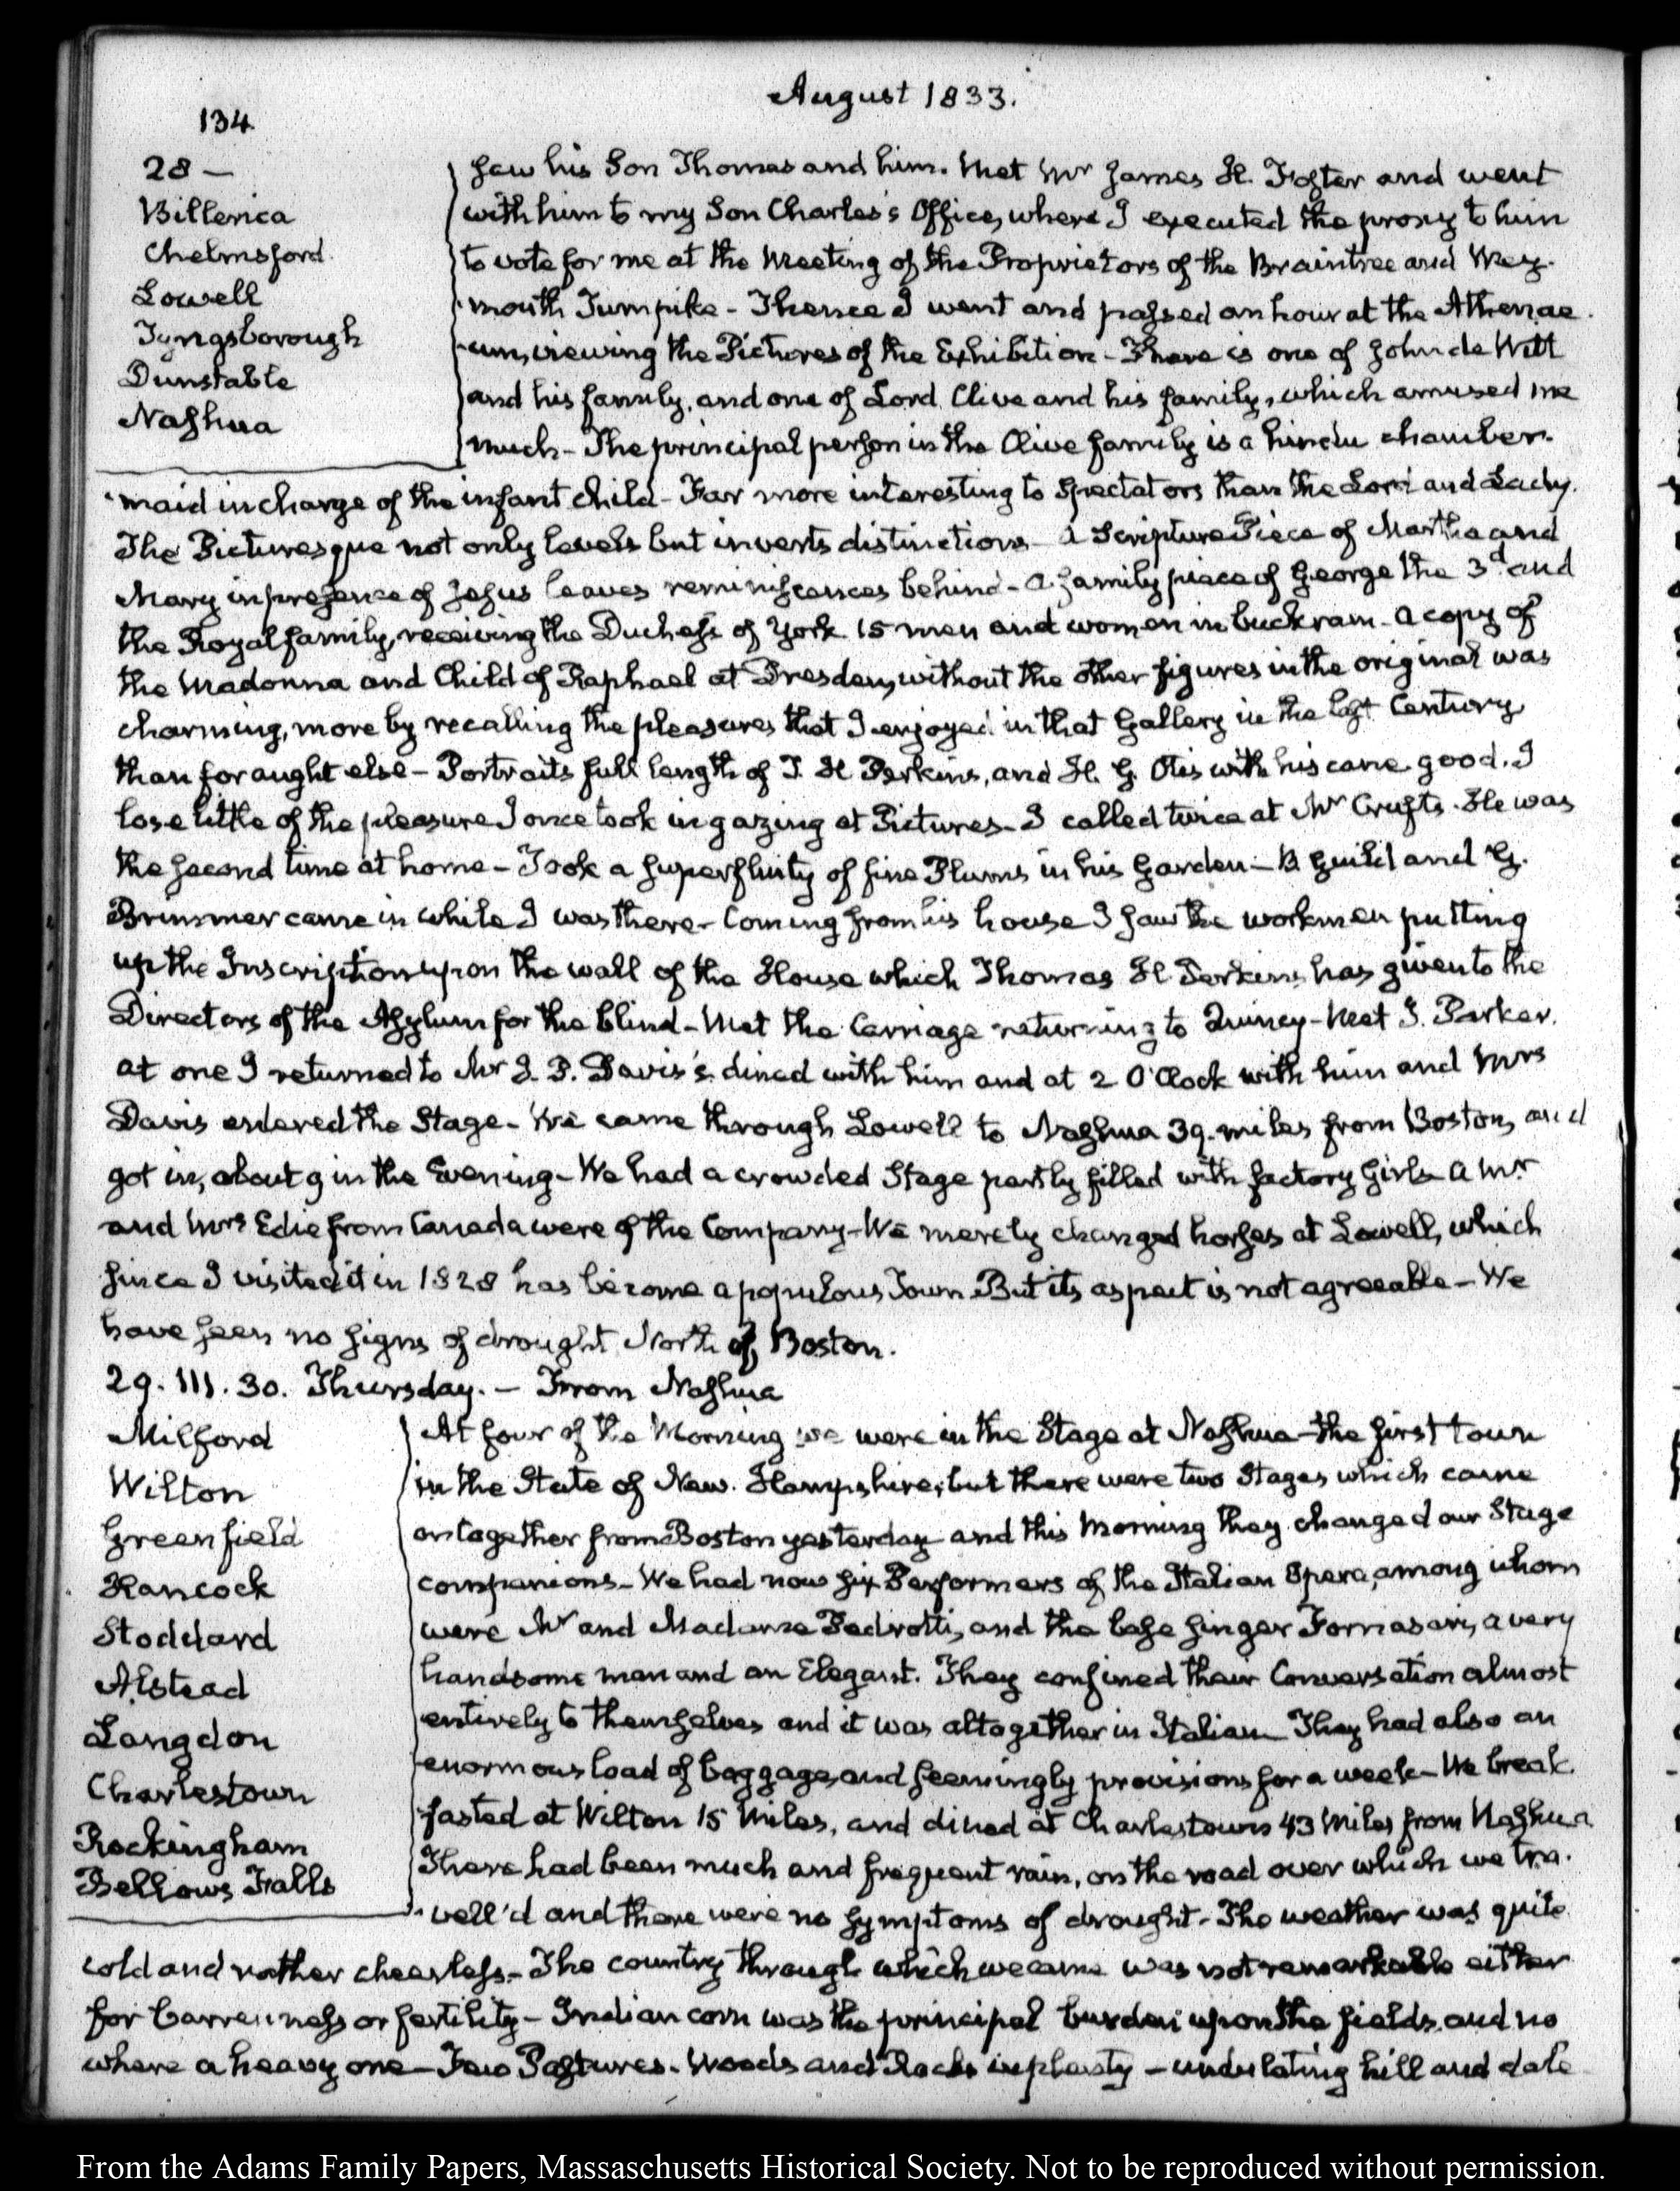 August 1833.
134
28 –
Billerica
Chelmsford.
Lowell
Tyngsborough
Dunstable
Nashua
saw his Son Thomas and him. Met Mr James H. Foster and went
with him to my Son Charles's Office, where I executed the proxy to him
to vote for me at the Meeting of the Proprietors of the Braintree and Wey-
mouth Turnpike - Thence I went and passed an hour at the Athenae-
-um, viewing the Pictures of the Exhibition - There is one of John de Witt
and his family, and one of Lord Clive and his family, which amused me
much - The principal person in the Clive family is a hindu chamber-
-maid in charge of the infant child - Far more interesting to Spectators than the Lord and Lady.
The Picturesque not only levels but inverts distinctions - A Scripture Piece of Martha and
Mary in presence of Jesus leaves reminiscences behind - a family piece of George the 3d and
the Royal family, receiving the Duchess of York 15 men and women in buckram - a copy of
the Madonna and Child of Raphael at Dresden, without the other figures in the original was
charming, more by recalling the pleasures that I enjoyed in that Gallery in the last Century
than for aught else - Portraits full length of T. H Perkins, and H. G. Otis with his cane good. I
lose little of the pleasure I once took in gazing at Pictures - I called twice at Mr Crufts. He was
the second time at home - Took a superfluity of fine Plums in his Garden - B Guild and G.
Brimmer came in while I was there - Coming from his house I saw the workmen putting
up the Inscription upon the wall of the House which Thomas H Perkins has given to the
Directors of the Asylum for the blind - Met the Carriage returning to Quincy - Met I. Parker.
at one I returned to Mr I. P. Davis's. dined with him and at 2 O'Clock with him and Mrs
Davis entered the Stage - We came through Lowell to Nashua 39. miles from Boston, and
got in, about 9 in the Evening - We had a crowded Stage partly filled with factory Girls - A Mr
and Mrs Edie from Canada were of the Company - We merely changed horses at Lowell, which
since I visited it in 1828 has become a populous Town But its aspect is not agreeable - We
have seen no signs of drought North of Boston.
29. III. 30. Thursday. - From Nashua
Milford
Wilton
Greenfield
Hancock
Stoddard
Alstead
Langdon
Charlestown
Rockingham
Bellows Falls
At four of the Morning we were in the Stage at Nashua - the first town
in the State of New. Hampshire; but there were two Stages which came
on together from Boston yesterday and this Morning they changed our Stage
companions - We had now six Performers of the Italian Opera, among whom
were Mr and Madame Pedrotti, and the base singer Fornasari, a very
handsome man and an Elegant. They confined their Conversation almost
entirely to themselves and it was altogether in Italian They had also an
enormous load of baggage, and seemingly provisions for a week - We break-
-fasted at Wilton 15 Miles, and dined at Charlestown 43 Miles from Nashua
There had been much and frequent rain, on the road over which we tra-
-vell'd and there were no symptoms of drought - The weather was quite
cold and rather cheerless - The country through which we came was not remarkable either
for barrenness or fertility - Indian corn was the principal burden upon the fields, and no
where a heavy one - Few Pastures - Woods and Rocks in plenty - undulating hill and dale
From the Adams Family Papers, Massachusetts Historical Society. Not to be reproduced without permission.